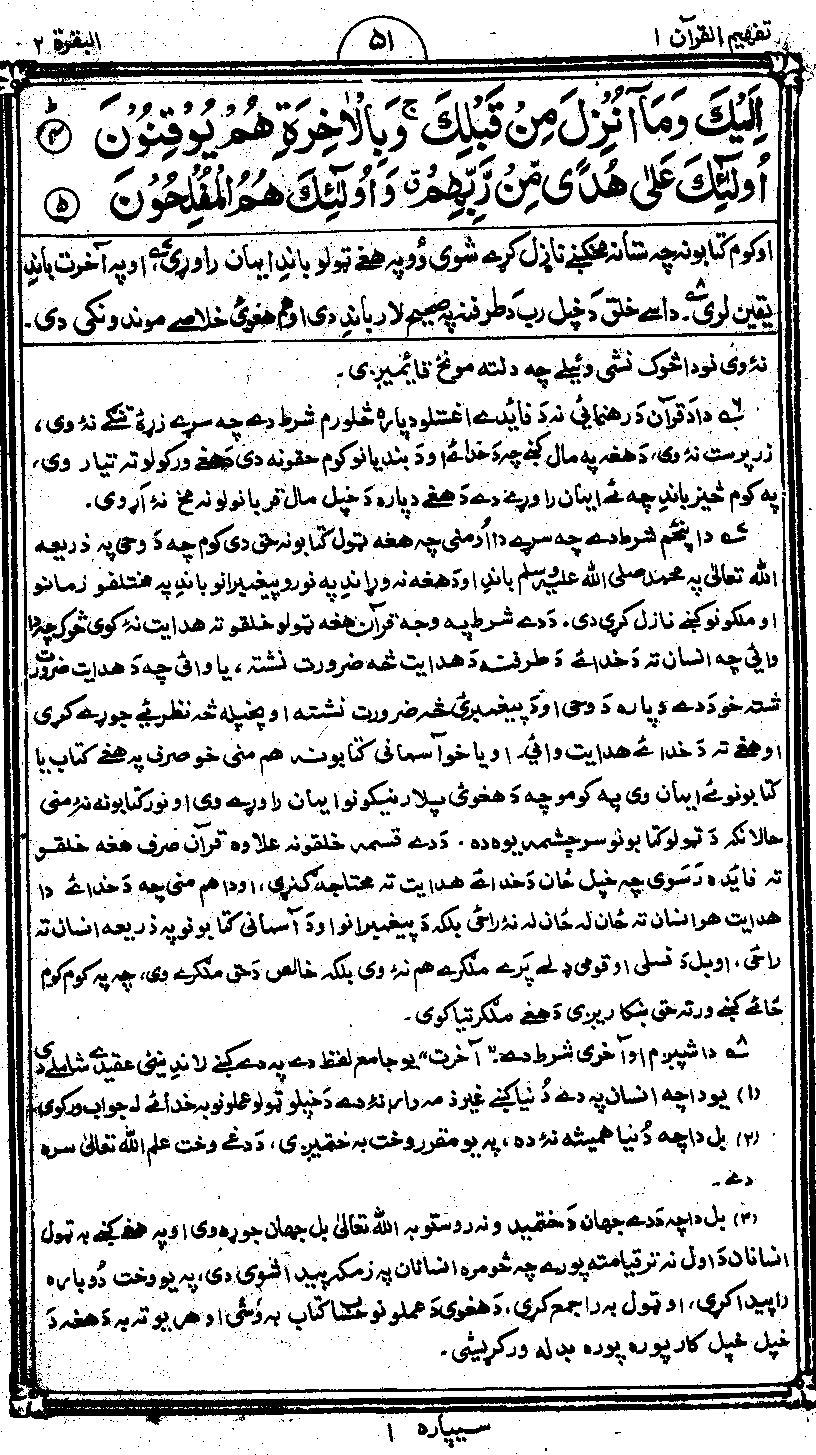 تفهیم القرآن ۱
۵۱
البقرة ۲
اِلَيْكَ وَمَآ اُنْزِلَ مِنْ قَبْلِكَ ۚ وَبِالْاٰخِرَةِ هُمْ يُوْقِنُوْنَ ۴
اُولٰٓئِكَ عَلٰى هُدًى مِّنْ رَّبِّهِمْ ۗ وَاُولٰٓئِكَ هُمُ الْمُفْلِحُوْنَ ۵
اوکوم کتابونه چه ستانه مخکښے نازل کړے شوی وُو په هغے ټولو باندِ ایمان راوړی ۷، اوپه آخرت باندِ
یقین لری ۸۔ داسے خلق دَ خپل رب دَ طرفنه په صحیح لار باندِ دی اوهم هغوئ خلاصے موندونکی دی۔
نهٔ وی نوداڅوک نشی وئیلے چه دلته مونځ قائمیږی۔
۶ داد قرآن دَ رهنمائی نه دَ فائدے اغستلو دپاره څلورم شرط دے چه سړے زړهٔ تنګے نهٔ وی،
زر پرست نهٔ وی، دَ هغه په مال کښے چه دَ خدائے اودَ بندیانو کوم حقونه دی دَ هغے ورکولو ته تیار وی،
په کوم څیز باندِ چه ئے ایمان راوړے دے دَ هغے دپاره دَ خپل مال قربانولو نه مخ نهٔ اَړوی۔
۷ دا پنځم شرط دے چه سړے دا اُومنی چه هغه ټول کتابونه حق دی کوم چه دَ وحی په ذریعه
الله تعالیٰ په محمد صلی الله علیه وسلم باندِ اودَ هغه نه وړاندِ په نورو پیغمبرانو باندِ په مختلفو زمانو
او ملکونو کښے نازل کړی دی۔ دَدے شرط په وجه قرآن هغه ټولو خلقو ته هدایت نهٔ کوی څوک چه دا
وائی چه انسان ته دَ خدائے دَ طرفنه دَ هدایت څه ضرورت نشته، یا وائی چه دَ هدایت ضرورت
شته خو دَدے دپاره دَ وحی اودَ پیغمبرئ څه ضرورت نشته او پخپله څه نظرئے جوړے کړی
او هغے ته دَ خدائے هدایت وائی۔ اویا خو آسمانی کتابونه هم منی خو صرف په هغے کتاب یا
کتابونوئے ایمان وی په کومو چه دَ هغوئ پلار نیکونو ایمان راوړے وی او نور کتابونه نهٔ منی
حالانکه دَ ټولو کتابونو سرچشمه یوه ده۔ دَدے قسمه خلقونه علاوه قرآن صرف هغه خلقو
ته فائده رَسَوی چه خپل ځان دَ خدائے هدایت ته محتاجه ګنړی، اودا هم منی چه دَ خدائے دا
هدایت هر انسان ته ځان له ځان له نهٔ راځی بلکه دَ پیغمبرانو اودَ آسمانی کتابونو په ذریعه انسان ته
راځی، اوبل دَ نسلی او قومی ډلے پَرے ملګرے هم نهٔ وی بلکه خالص دَ حق ملګرے وی، چه په کوم کوم
ځائے کښے ورته حق ښکاریږی دَ هغے ملګرتیا کوی۔
۸ دا شپږم اوآخری شرط دے۔ "آخرت" یو جامع لفظ دے په دے کښے لاندِینئی عقیدے شاملے دی
(۱) یو داچه انسان په دے دُنیا کښے غیر ذمه دار نهٔ دے دَ خپلو ټولو عملونو به خدائے له جواب ورکوی
(۲) بل داچه دُنیا همیشه نهٔ ده، په یو مقرر وخت به ختمیږی، دَ دغے وخت علم الله تعالیٰ سره
دے۔
(۳) بل داچه دَدے جهان دَ ختمیدو نه روستو به الله تعالیٰ بل جهان جوړه وی اوپه هغے کښے به ټول
انسانان دَ اول نه تر قیامته پورے چه څومره انسانان په زمکه پیدا شوی دی، په یو وخت دُوباره
راپیدا کړی، او ټول به راجمع کړی، دَ هغوئ دَ عملونو حساب کتاب به وُشی اوهر یو ته به دَ هغه دَ
خپل خپل کار پوره پوره بدله ورکړیشی۔
سیپاره ۱